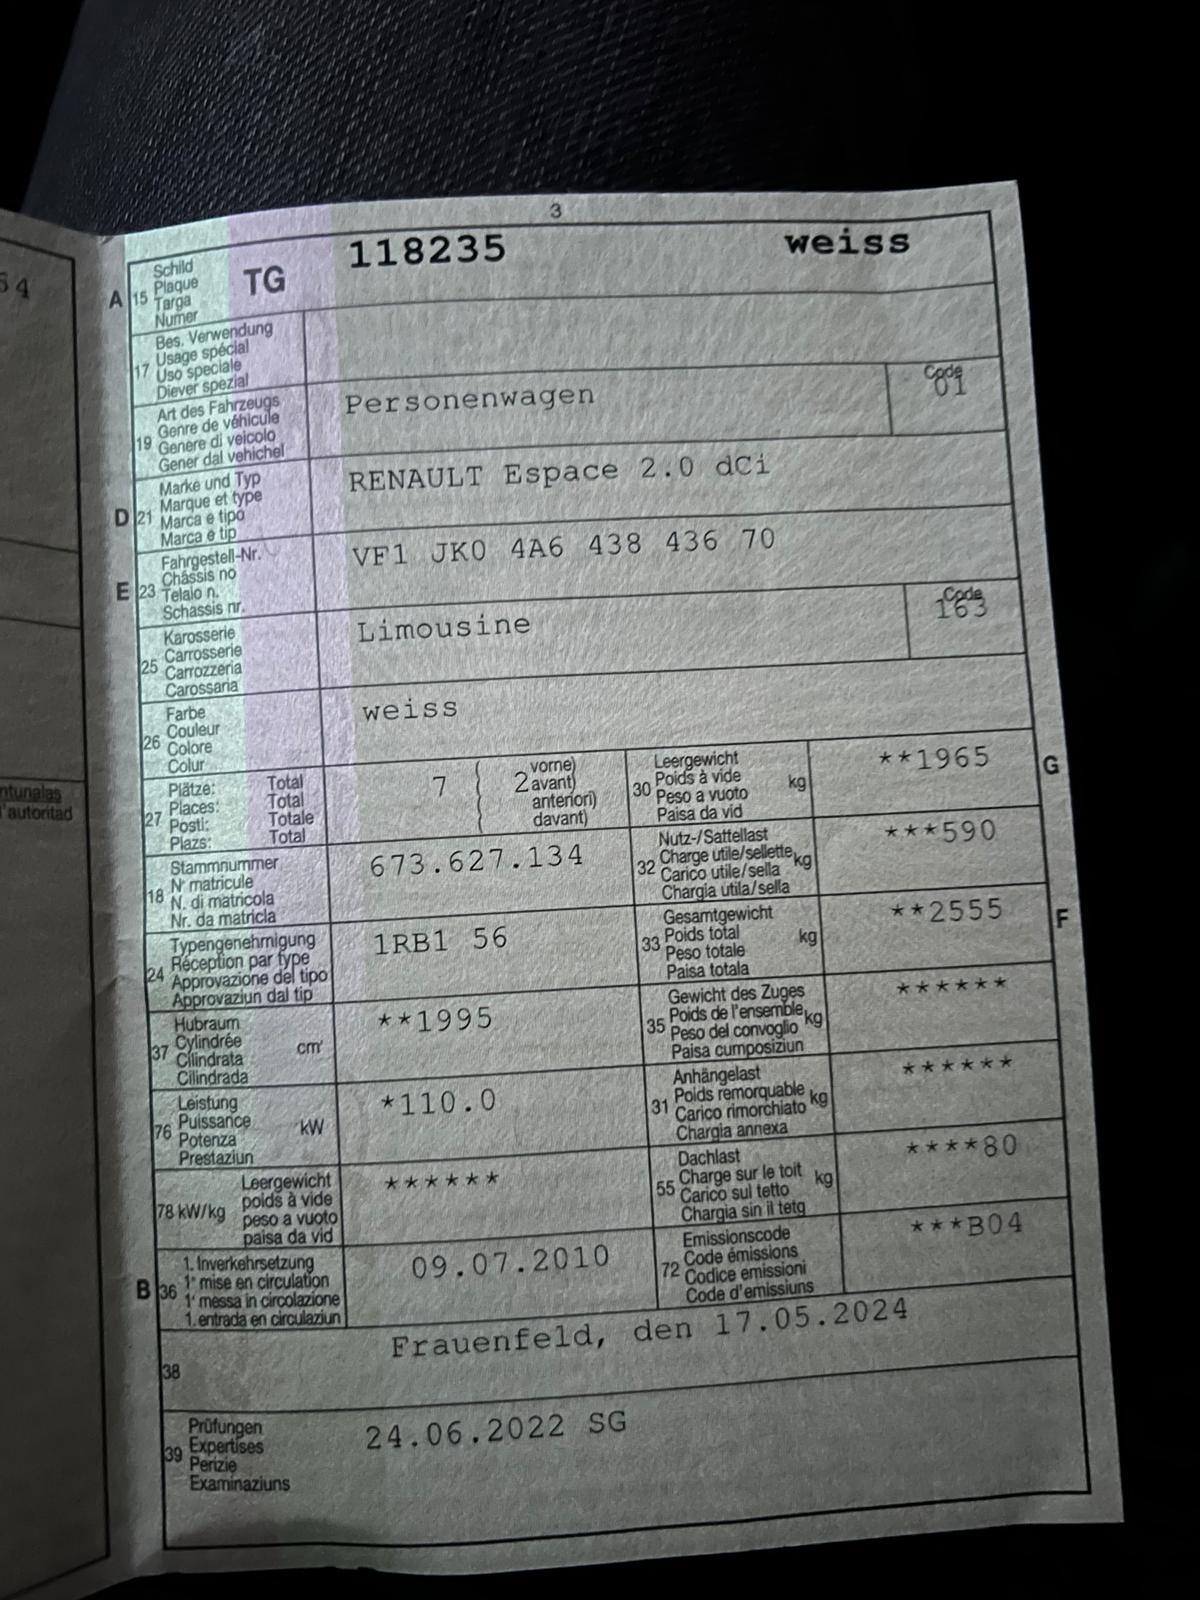 54
ntunalas
l'autoritad
3
A 15 Schild
Plaque
Targa
Numer
TG 118235 weiss
17 Bes. Verwendung
Usage spécial
Uso speciale
Diever spezial
19 Art des Fahrzeugs
Genre de véhicule
Genere di veicolo
Gener dal vehichel
Personenwagen
Code
01
D 21 Marke und Typ
Marque et type
Marca e tipo
Marca e tip
RENAULT Espace 2.0 dCi
E 23 Fahrgestell-Nr.
Châssis no
Telaio n.
Schassis nr.
VF1 JK0 4A6 438 436 70
25 Karosserie
Carrosserie
Carrozzeria
Carossaria
Limousine
Code
163
26 Farbe
Couleur
Colore
Colur
weiss
27 Plätze: Total
Places: Total
Posti: Totale
Plazs: Total
7 ( 2 vorne)
avant)
anteriori)
davant)
30 Leergewicht
Poids à vide kg
Peso a vuoto
Paisa da vid
**1965 G
18 Stammnummer
N° matricule
N. di matricola
Nr. da matricla
673.627.134
32 Nutz-/Sattellast
Charge utile/sellette kg
Carico utile/sella
Chargia utila/sella
***590
24 Typengenehmigung
Réception par type
Approvazione del tipo
Approvaziun dal tip
1RB1 56
33 Gesamtgewicht
Poids total kg
Peso totale
Paisa totala
**2555 F
37 Hubraum
Cylindrée
Cilindrata cm³
Cilindrada
**1995
35 Gewicht des Zuges
Poids de l'ensemble kg
Peso del convoglio
Paisa cumposiziun
******
76 Leistung
Puissance kW
Potenza
Prestaziun
*110.0
31 Anhängelast
Poids remorquable kg
Carico rimorchiato
Chargia annexa
******
78 kW/kg Leergewicht
poids à vide
peso a vuoto
paisa da vid
******
55 Dachlast
Charge sur le toit kg
Carico sul tetto
Chargia sin il tetg
****80
B 36 1. Inverkehrsetzung
1ʳᵉ mise en circulation
1ª messa in circolazione
1. entrada en circulaziun
09.07.2010
72 Emissionscode
Code émissions
Codice emissioni
Code d'emissiuns
***B04
38 Frauenfeld, den 17.05.2024
39 Prüfungen
Expertises
Perizie
Examinaziuns
24.06.2022 SG